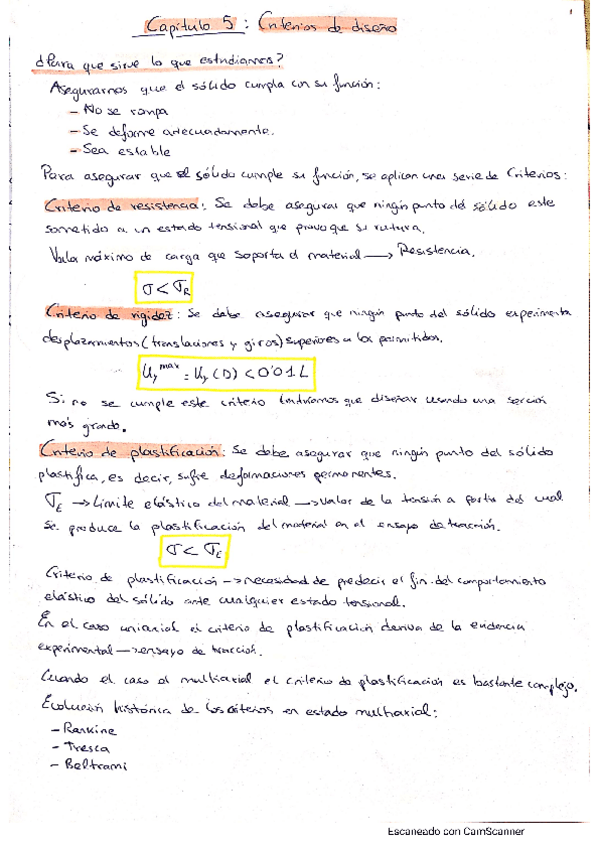 1
Capítulo 5: Criterios de diseño
¿Para que sirve lo que estudiamos?
Asegurarnos que el sólido cumpla con su función:
- No se rompa
- Se deforme adecuadamente.
- Sea estable
Para asegurar que el sólido cumple su función, se aplican una serie de Criterios:
Criterio de resistencia: Se debe asegurar que ningún punto del sólido este
sometido a un estado tensional que provoque su rutura.
Valor máximo de carga que soporta el material → Resistencia.
σ < σR
Criterio de rigidez: Se debe asegurar que ningún punto del sólido experimenta
desplazamientos (translaciones y giros) superiores a los permitidos.
Uy max = Uy (D) < 0'01 L
Si no se cumple este criterio tendríamos que diseñar usando una sección
más grado.
Criterio de plastificación: Se debe asegurar que ningún punto del sólido
plastifica, es decir, sufre deformaciones permanentes.
σE → Límite elástico del material → valor de la tensión a partir del cual
se produce la plastificación del material en el ensayo de tracción.
σ < σE
Criterio de plastificación → necesidad de predecir el fin del comportamiento
elástico del sólido ante cualquier estado tensional.
En el caso uniaxial el criterio de plastificación deriva de la evidencia
experimental → ensayo de tracción.
Cuando el caso al multiaxial el criterio de plastificación es bastante complejo.
Evolución histórica de los criterios en estado multiaxial:
- Rankine
- Tresca
- Beltrami
Escaneado con CamScanner